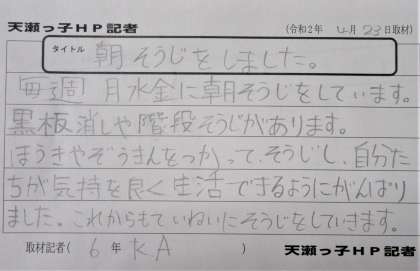 天瀬っ子HP記者 (令和2年 4月 23日取材)
タイトル 朝そうじをしました。
毎週 月水金に朝そうじをしています。
黒板消しや階段そうじがあります。
ほうきやぞうきんをつかって、そうじし、自分た
ちが気持を良く生活できるようにがんばり
ました。これからもていねいにそうじをしていきます。
取材記者( 6 年 K A ) 天瀬っ子HP記者